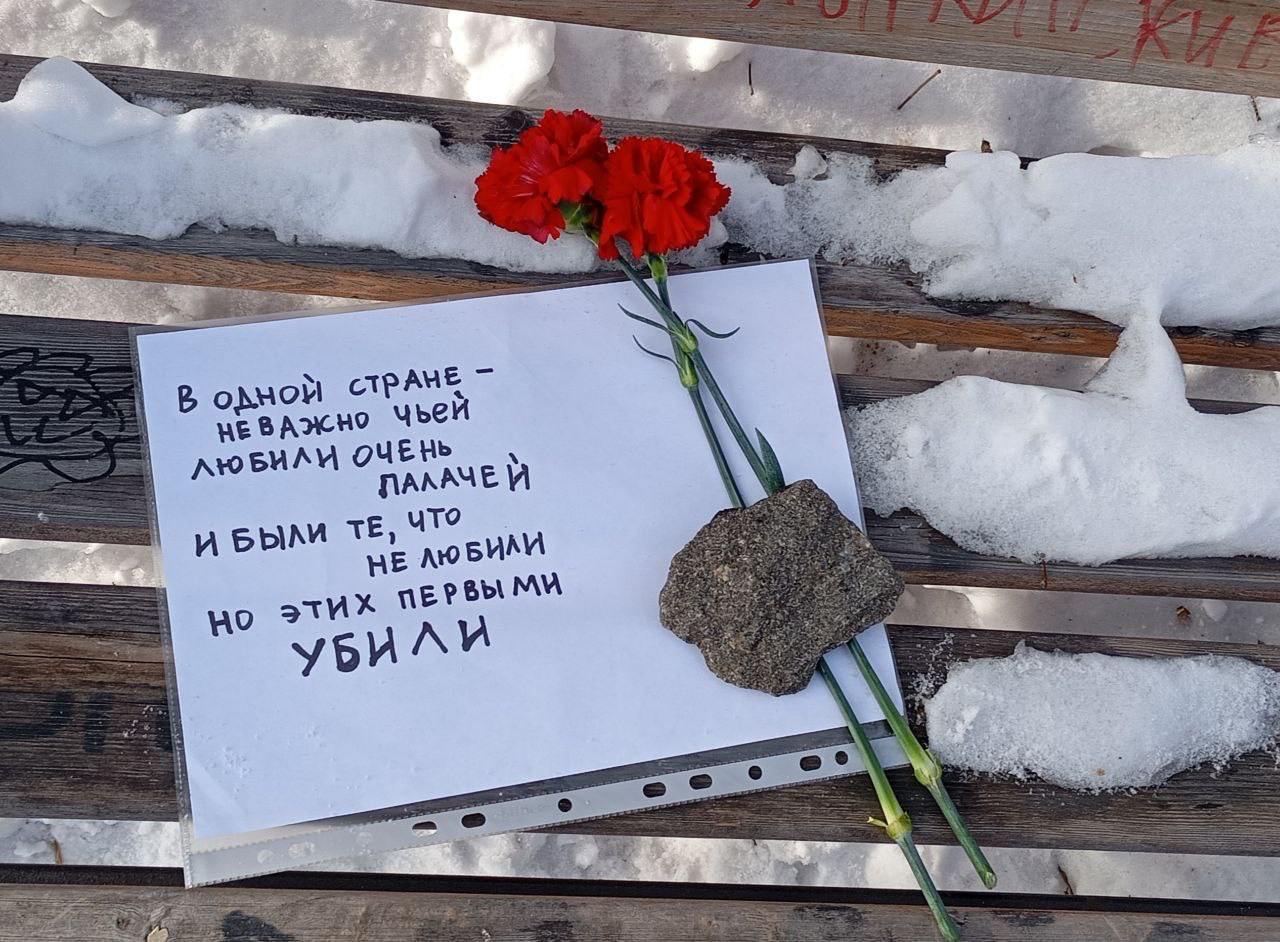 ЖИВ
В ОДНОЙ СТРАНЕ –
НЕВАЖНО ЧЬЕЙ
ЛЮБИЛИ ОЧЕНЬ
ПАЛАЧЕЙ
И БЫЛИ ТЕ, ЧТО
НЕ ЛЮБИЛИ
НО ЭТИХ ПЕРВЫМИ
УБИЛИ